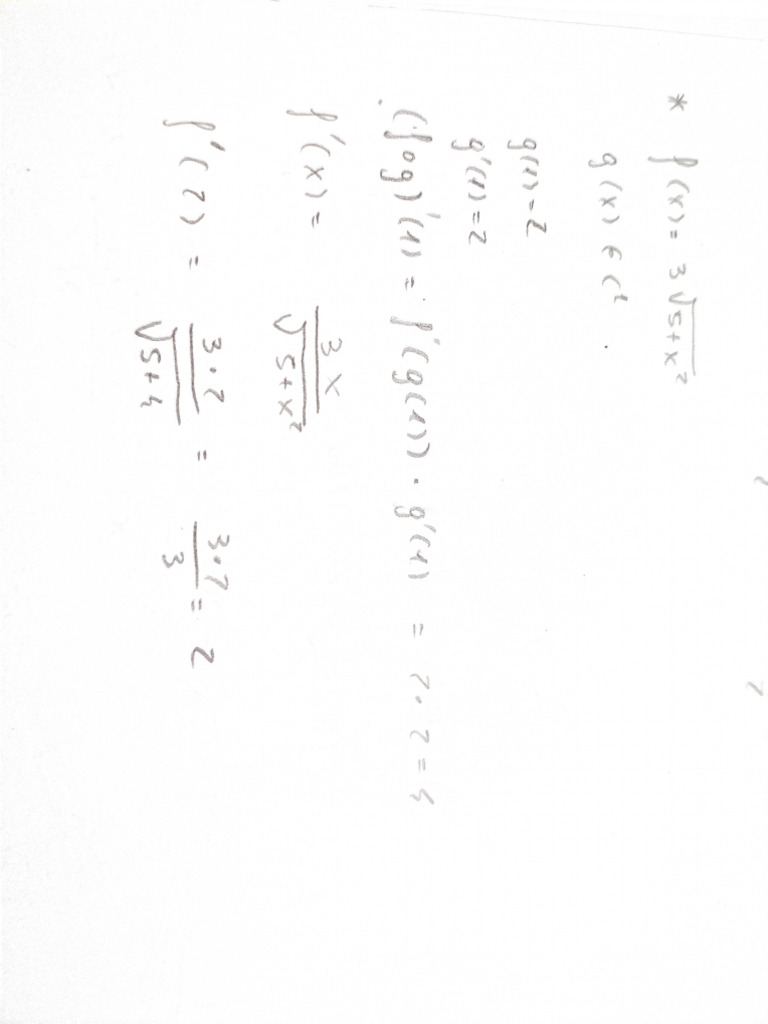 * f(x) = 3√(5+x²)
g(x) ∈ C²
g(1) = 2
g'(1) = 2
(f∘g)'(1) = f'(g(1)) · g'(1) = 2·2 = 4
f'(x) = 3x/√(5+x²)
f'(2) = 3·2/√(5+4) = 3·2/3 = 2